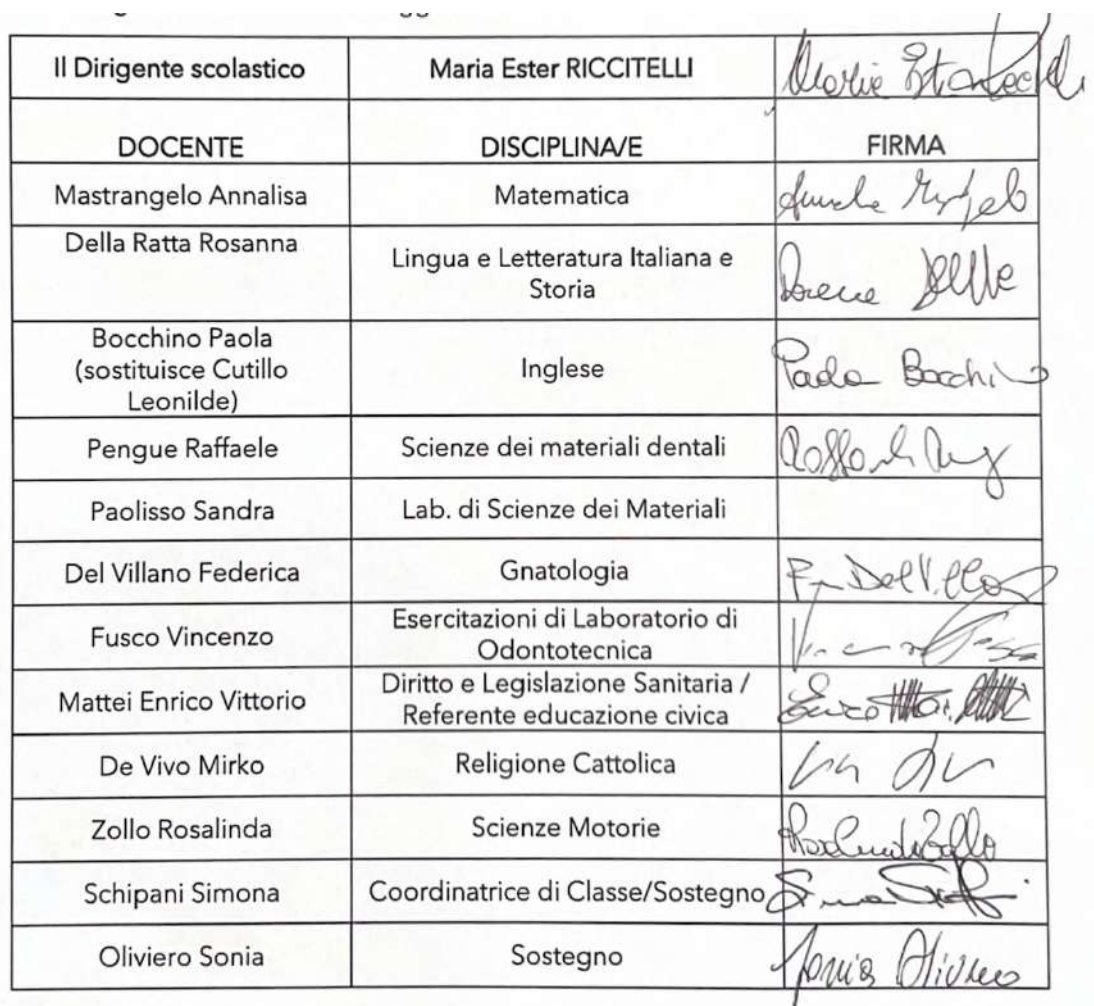 Il Dirigente scolastico Maria Ester RICCITELLI Maria Ester
DOCENTE DISCIPLINA/E FIRMA
Mastrangelo Annalisa Matematica
Della Ratta Rosanna
Lingua e Letteratura Italiana e
Storia
Bocchino Paola
(sostituisce Cutillo
Leonilde)
Inglese Paola Bocchino
Pengue Raffaele Scienze dei materiali dentali
Paolisso Sandra Lab. di Scienze dei Materiali
Del Villano Federica Gnatologia
Fusco Vincenzo
Esercitazioni di Laboratorio di
Odontotecnica
Mattei Enrico Vittorio
Diritto e Legislazione Sanitaria /
Referente educazione civica
De Vivo Mirko Religione Cattolica
Zollo Rosalinda Scienze Motorie Rosalinda Zollo
Schipani Simona Coordinatrice di Classe/Sostegno
Oliviero Sonia Sostegno Sonia Oliviero